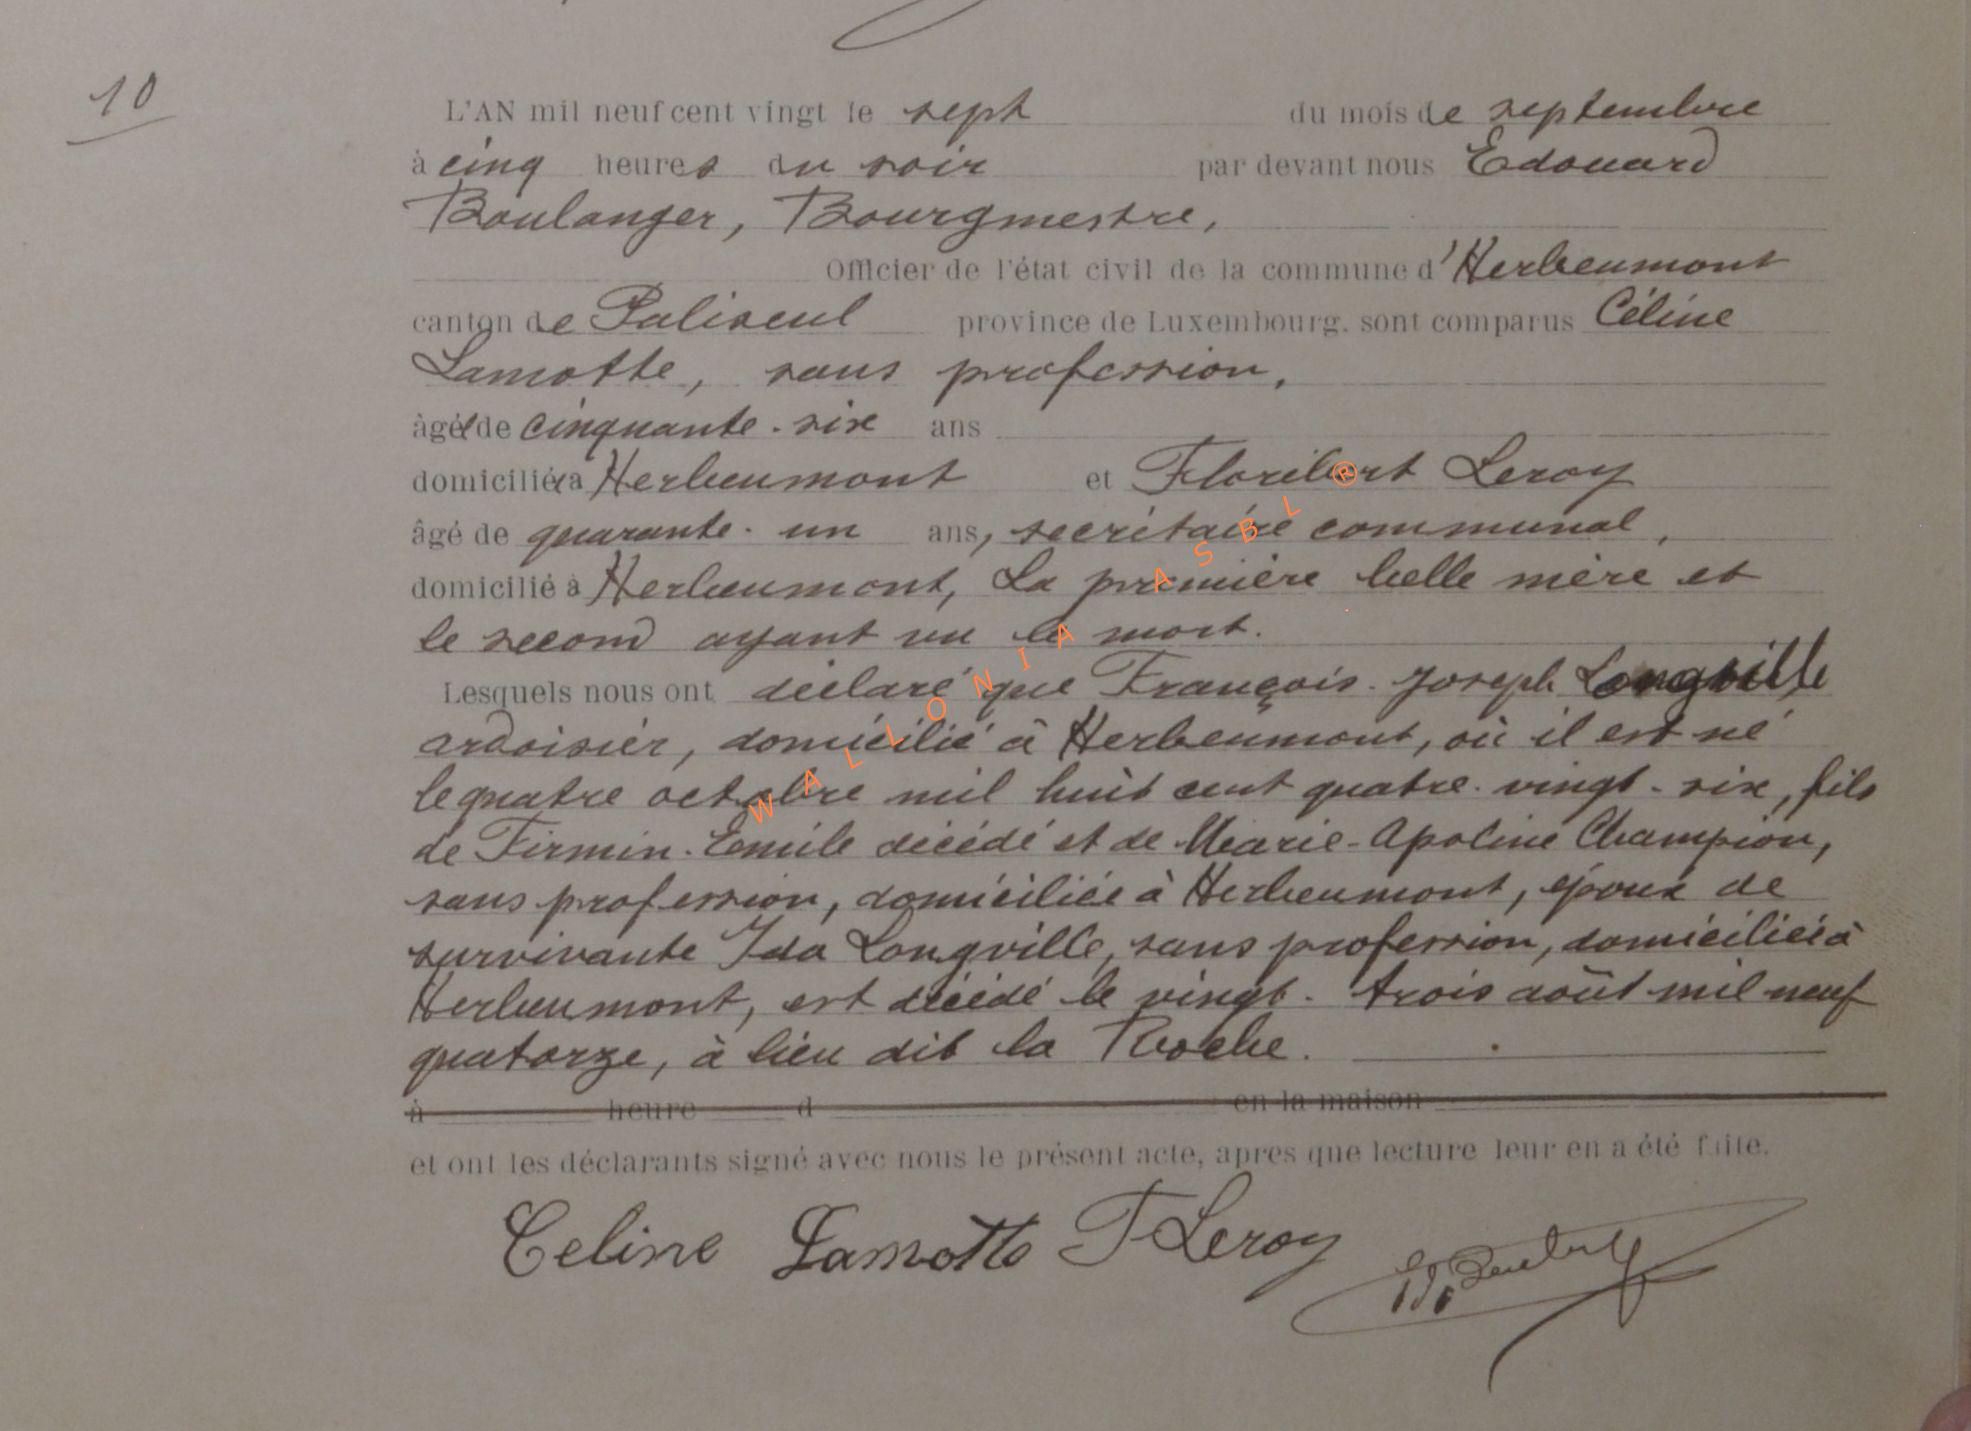 10
L'AN mil neuf cent vingt le sept du mois de septembre
à cinq heures du soir par devant nous Edouard
Boulanger, Bourgmestre,
Officier de l'état civil de la commune d'Herbeumont
canton de Paliseul province de Luxembourg. sont comparus Céline
Lamotte, sans profession,
âgée de cinquante-six ans
domiciliée à Herbeumont et Floribert Leroy
âgé de quarante-un ans, secrétaire communal,
domicilié à Herbeumont, La première belle mère et
le second ayant vu le mort.
Lesquels nous ont déclaré que François-Joseph Longville
ardoisier, domicilié à Herbeumont, où il est né
le quatre octobre mil huit cent quatre-vingt-six, fils
de Firmin-Emile décédé et de Marie-Apoline Champion,
sans profession, domiciliée à Herbeumont, époux de
survivante Ida Longville, sans profession, domiciliée à
Herbeumont, est décédé le vingt-trois août mil neuf
quatorze, à lieu dit la Roche.
à heure d en la maison
et ont les déclarants signé avec nous le présent acte, apres que lecture leur en a été faite.
Celine Lamotte F Leroy
WALLONIA ASBL ®